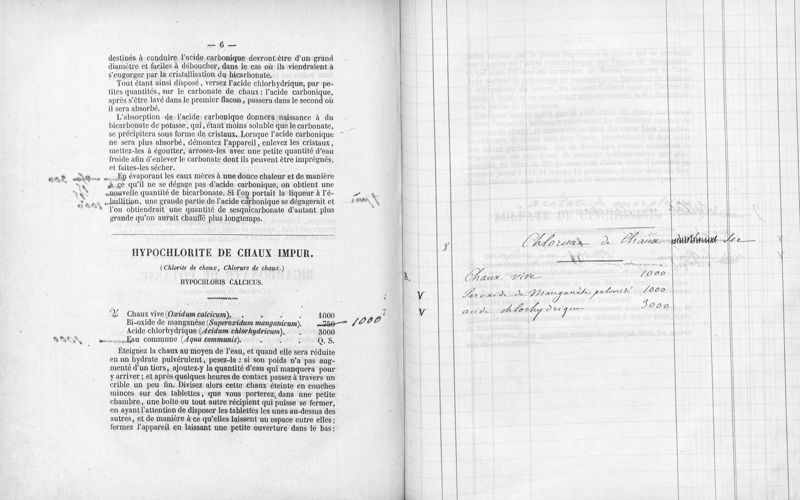 — 6 —
destinés à conduire l'acide carbonique devront être d'un grand
diamètre et faciles à déboucher, dans le cas où ils viendraient à
s'engorger par la cristallisation du bicarbonate.
Tout étant ainsi disposé, versez l'acide chlorhydrique, par pe-
tites quantités, sur le carbonate de chaux : l'acide carbonique,
après s'être lavé dans le premier flacon, passera dans le second où
il sera absorbé.
L'absorption de l'acide carbonique donnera naissance à du
bicarbonate de potasse, qui, étant moins soluble que le carbonate,
se précipitera sous forme de cristaux. Lorsque l'acide carbonique
ne sera plus absorbé, démontez l'appareil, enlevez les cristaux,
mettez-les à égoutter, arrosez-les avec une petite quantité d'eau
froide afin d'enlever le carbonate dont ils peuvent être imprégnés,
et faites-les sécher.
En évaporant les eaux mères à une douce chaleur et de manière
à ce qu'il ne se dégage pas d'acide carbonique, on obtient une
nouvelle quantité de bicarbonate. Si l'on portait la liqueur à l'é-
bullition, une grande partie de l'acide carbonique se dégagerait et
l'on obtiendrait une quantité de sesquicarbonate d'autant plus
grande qu'on aurait chauffé plus longtemps.
HYPOCHLORITE DE CHAUX IMPUR.
(Chlorite de chaux, Chlorure de chaux.)
HYPOCHLORIS CALCICUS.
Chaux vive (Oxidum calcicum). . . . . 1000
Bi-oxide de manganèse (Superoxidum manganicum). 750 1000
Acide chlorhydrique (Acidum chlorhydricum). . . 3000
Eau commune (Aqua communis). . . . . Q. S.
Éteignez la chaux au moyen de l'eau, et quand elle sera réduite
en un hydrate pulvérulent, pesez-la : si son poids n'a pas aug-
menté d'un tiers, ajoutez-y la quantité d'eau qui manquera pour
y arriver; et après quelques heures de contact passez à travers un
crible un peu fin. Divisez alors cette chaux éteinte en couches
minces sur des tablettes, que vous porterez dans une petite
chambre, une boîte ou tout autre récipient qui puisse se fermer,
en ayant l'attention de disposer les tablettes les unes au-dessus des
autres, et de manière à ce qu'elles laissent un espace entre elles;
fermez l'appareil en laissant une petite ouverture dans le bas:
8 Chlorure de Chaux Sec
Chaux vive 1000
V Peroxide de Manganèse pulverisé 1000
V acide chlorhydrique 3000